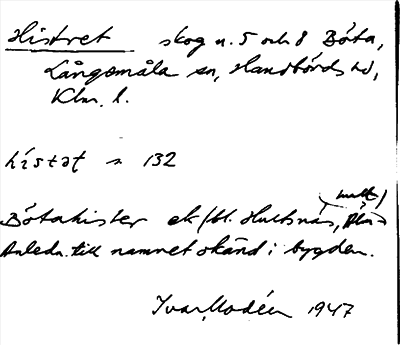 Histret skog n. 5 och 8 Böta,
Långemåla sn, Handbörds hd,
Klm. l.
hístət ~ 132
(mellt)
Bötahister ek/bl. Hultsnäs,
Anledn. till namnet okänd i bygden.
Ivar Modéer 1947